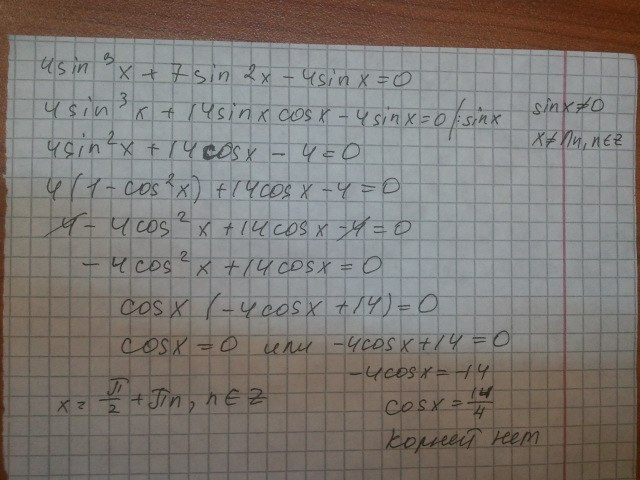 4sin³x + 7sin2x − 4sinx = 0
4sin³x + 14sinx cosx − 4sinx = 0 /:sinx
sinx ≠ 0
x ≠ Пn, n∈Z
4sin²x + 14cosx − 4 = 0
4(1 − cos²x) + 14cosx − 4 = 0
4 − 4cos²x + 14cosx − 4 = 0
−4cos²x + 14cosx = 0
cosx (−4cosx + 14) = 0
cosx = 0 или −4cosx + 14 = 0
−4cosx = −14
x = П/2 + Пn, n∈Z
cosx = 14/4
корней нет